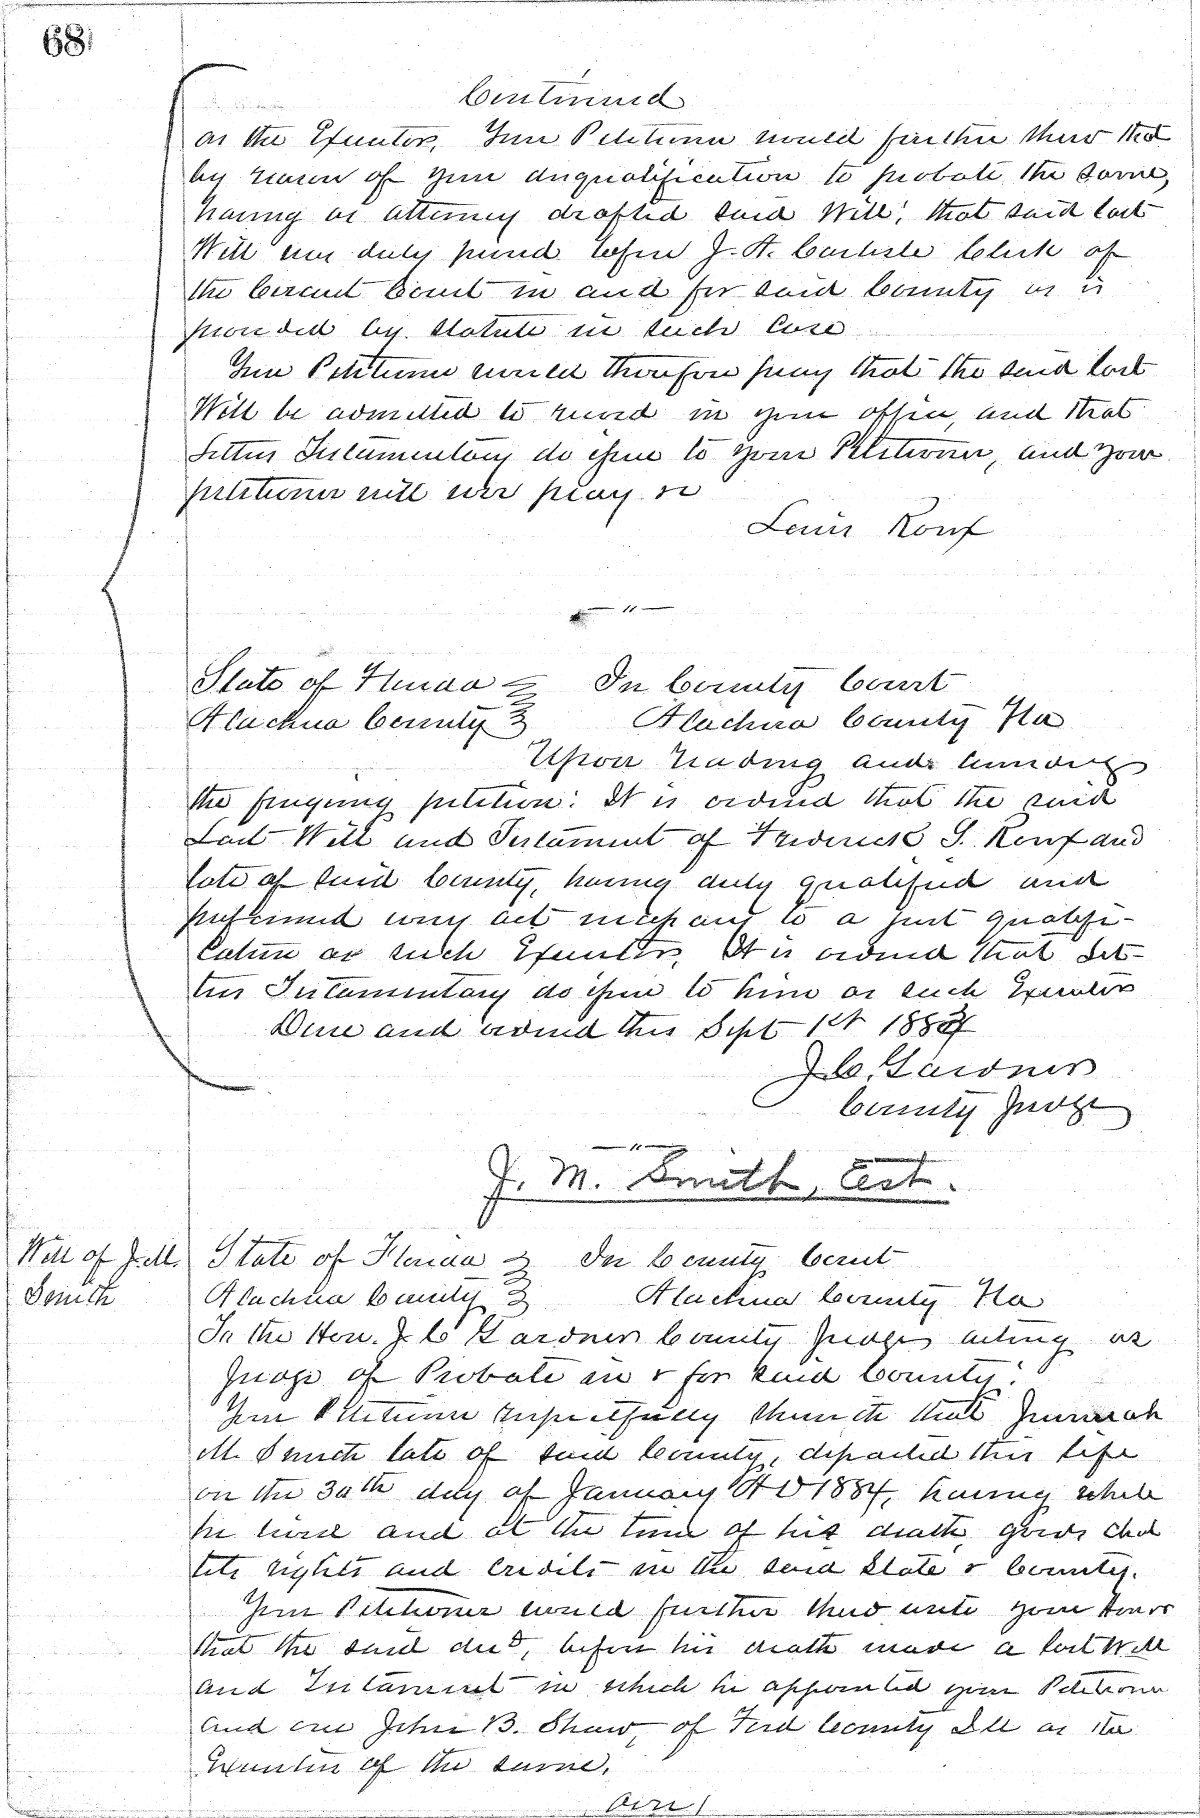 68
Continued
as the Executor, Your Petitioner would further shew that
by reason of your disqualification to probate the same,
having as attorney drafted said Will; that said last
Will was duly proved before J. A. Carlisle Clerk of
the Circuit Court in and for said County as is
provided by statute in such Case
Your Petitioner would therefore pray that the said last
Will be admitted to record in your office, and that
Letters Testamentary do issue to your Petitioner, and your
petitioner will ever pray &c
Louis Rouf
— " —
State of Florida } In County Court
Alachua County } Alachua County Fla
Upon reading and
the foregoing petition: It is ordered that the said
Last Will and Testament of Frederick S. Rouf and
late of said County, having duly qualified and
performed every act necessary to a just qualifi-
cation as such Executor, It is ordered that Let-
ters Testamentary do issue to him as such Executor
Done and ordered this Sept 1st 1884
J. C. Gardner
County Judge
— " —
J. M. Smith, Est.
Will of J. M.
Smith
State of Florida } In County Court
Alachua County } Alachua County Fla
To the Hon. J. C Gardner County Judge acting as
Judge of Probate in & for said County:
Your Petitioner respectfully sheweth that Jeremiah
M. Smith late of said County, departed this life
on the 30th day of January A D 1884, having while
he lived and at the time of his death, goods chat
tels rights and credits in the said State & County.
Your Petitioner would further shew unto your Honor
that the said decd, before his death made a last Will
and Testament in which he appointed your Petitioner
and one John B. Shaw, of Ford County Ill as the
Executors of the same.
Over